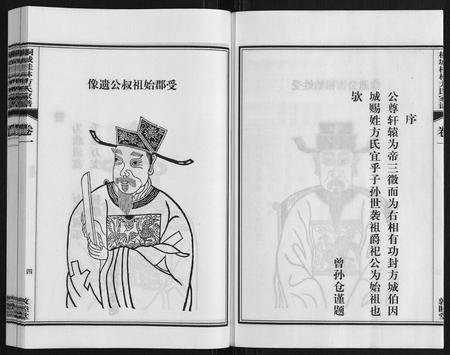 序
公尊轩辕为帝三徵而为右相有功封方城伯因
城赐姓方氏宜乎子孙世袭祖爵祀公为始祖也
欤
曾孙仓谨题
受郡始祖叔公遗像
桐城桂林方氏家谱
卷一
四